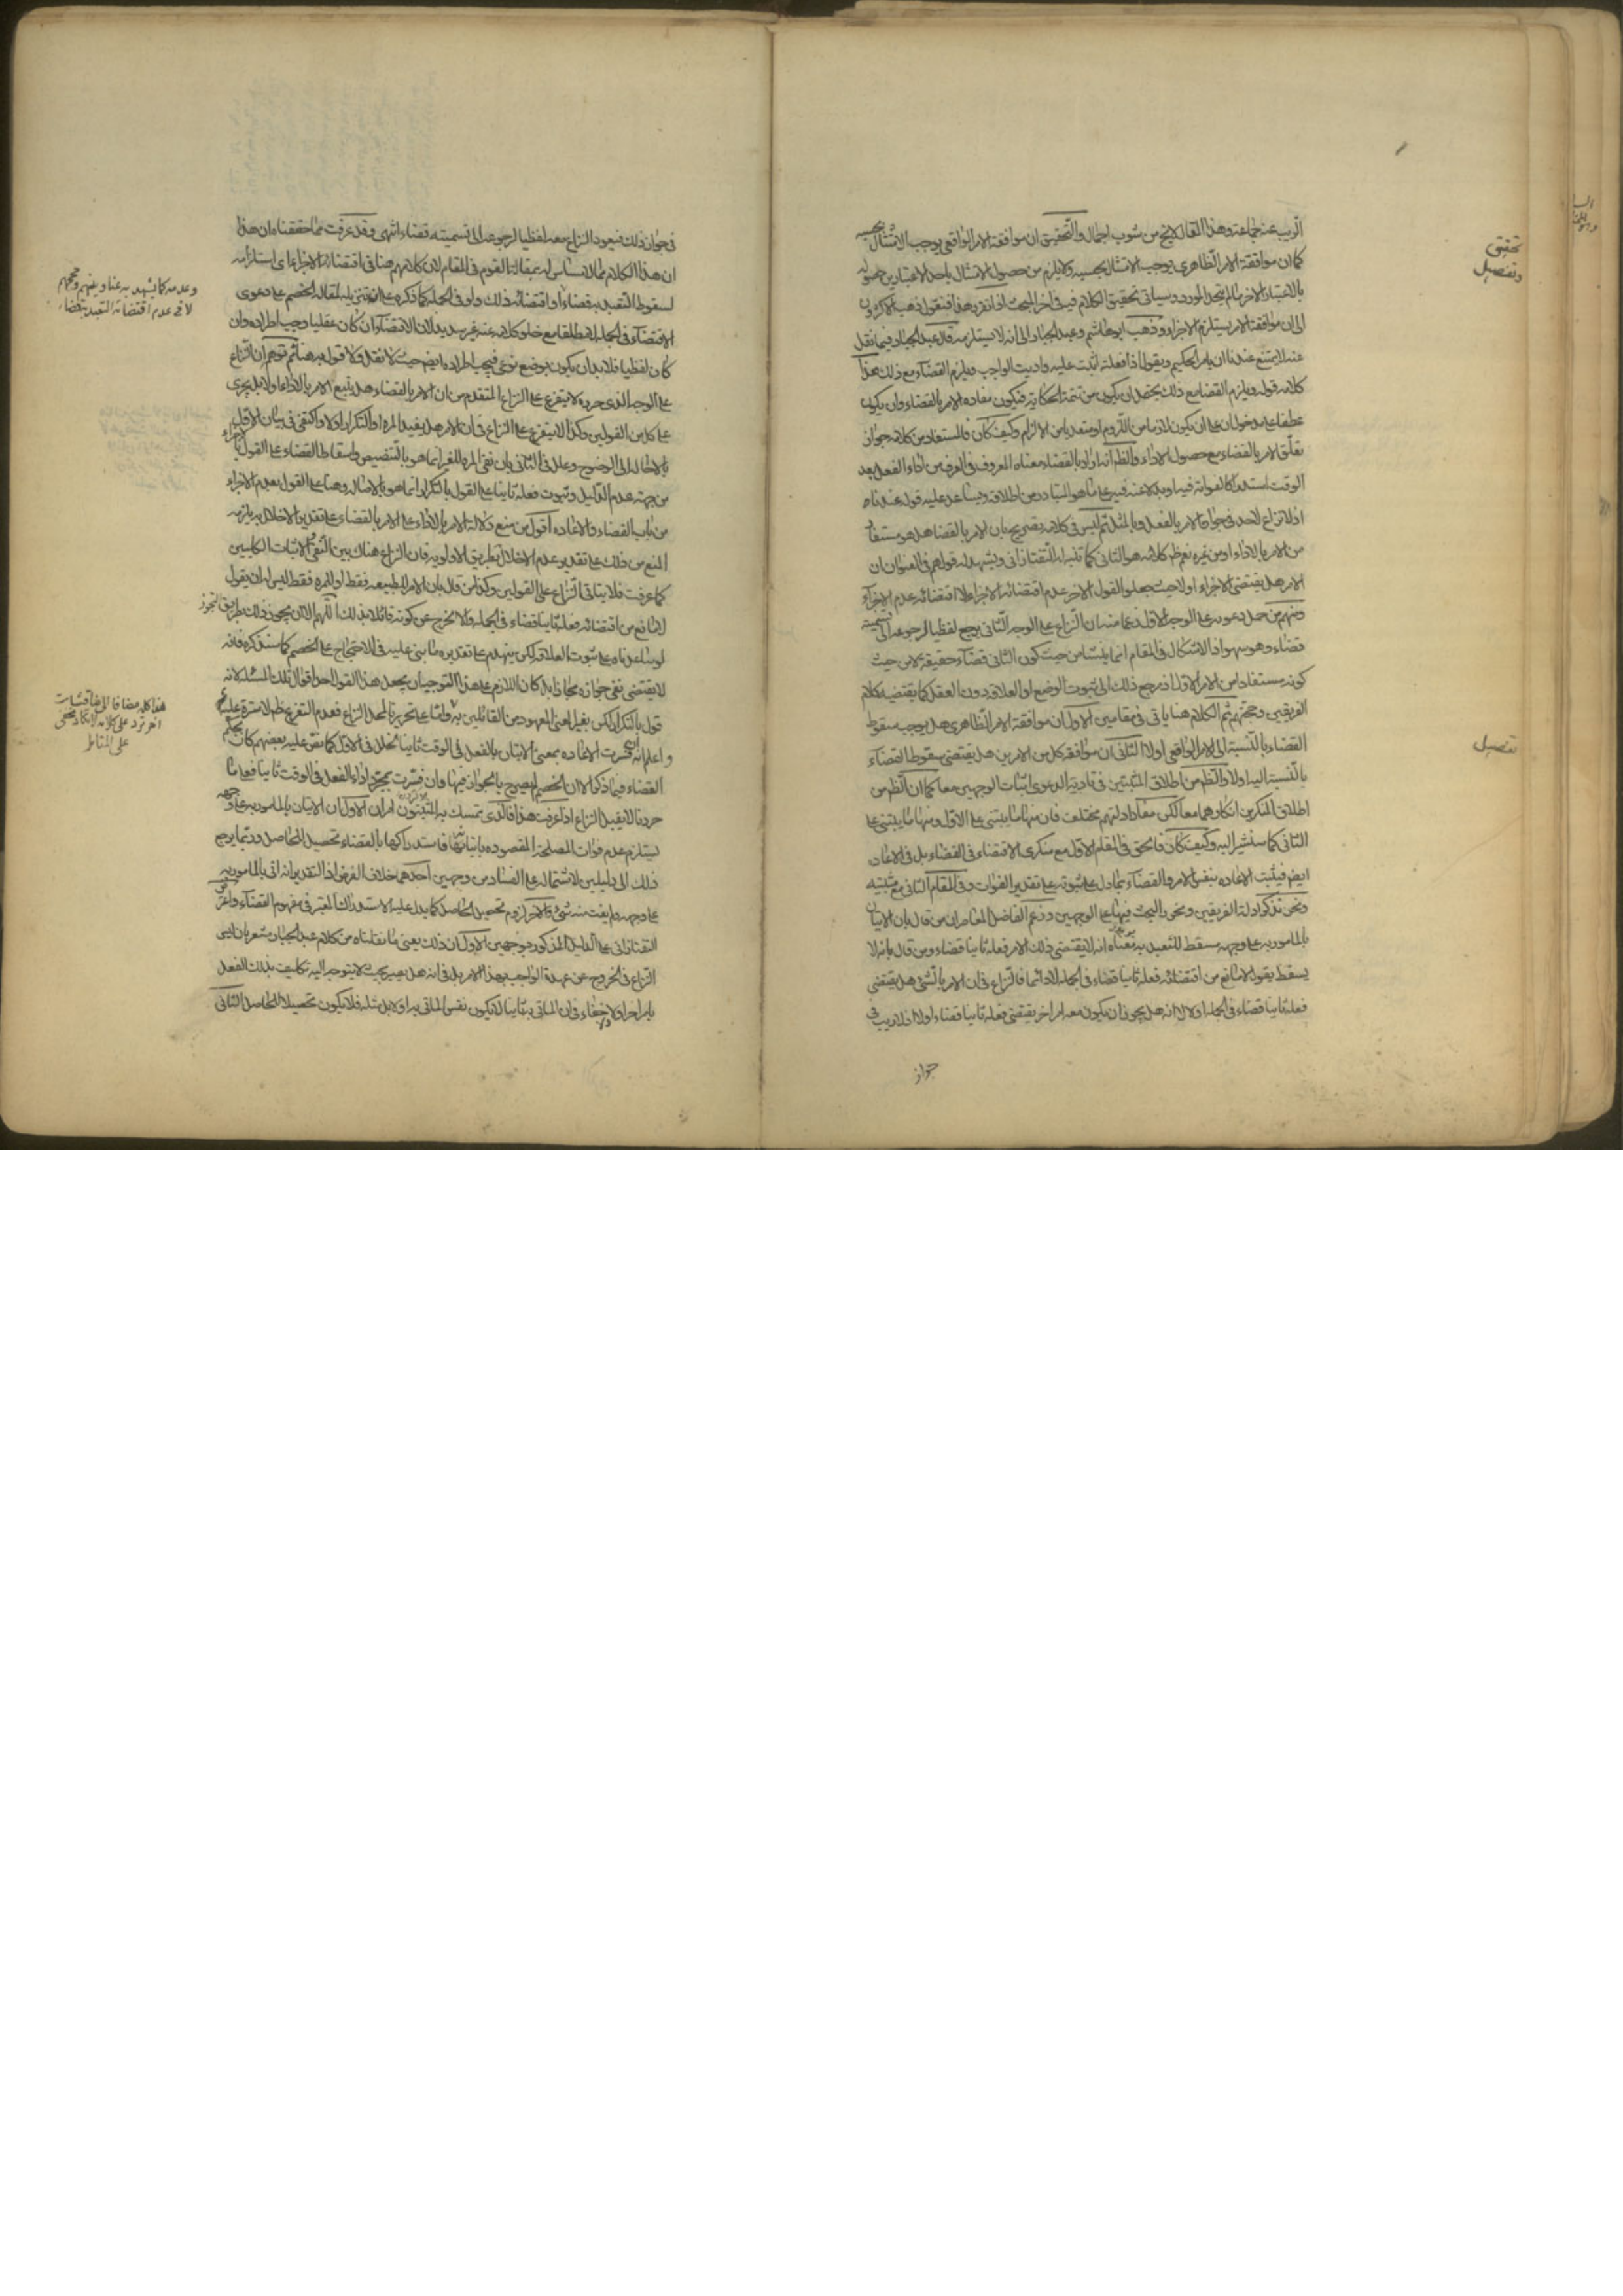 الريب عنه جماعة وهذا المقال لا يخ من شوب اجمال والتحقيق ان موافقة الامر الواقعي يوجب الامتثال بحسبه
كما ان موافقة الامر الظاهري يوجب الامتثال بحسبه ولا يلزم من حصول الامتثال باحد الاعتبارين حصوله
بالاعتبار الاخر ما لم يتحد المورد وسياتي تحقيق الكلام فيه في اخر المبحث اذا تقرر هذا فنقول ذهب الاكثرون
الى ان موافقة الامر يستلزم الاجزاء وذهب ابو هاشم وعبد الجبار الى انه لا يستلزمه قال عبد الجبار فيما نقل
عنه لا يمتنع عندنا ان يامر الحكيم ويقول اذا فعلته اثبت عليه واديت الواجب ويلزم القضاء مع ذلك هذا
كلامه قوله ويلزم القضا مع ذلك يحتمل ان يكون من تتمة الحكاية فيكون مفاده الامر بالقضاء وان يكون
عطفا على مدخول ان على ان يكون لازما من اللزوم او متعديا من الالزام وكيف كان فالمستفاد من كلامه جواز
تعلق الامر بالقضاء مع حصول الاداء والظ انه اراد بالقضاء معناه المعروف في العرف من اداء الفعل بعد
الوقت استدراكا لفواته فيه او بدلا عنه فيه على ما هو المتبادر من اطلاقه ويساعد عليه قوله عندنا
اذ لا نزاع لاحد في جواز الامر بالفعل وبالمثل ثم ليس في كلامه تصريح بان الامر بالقضا هل هو مستفاد
من الامر بالاداء او من غيره نعم ظ كلامه هو الثاني كما تنبه له التفتازاني ويشهد له قولهم في العنوان ان
الامر هل يقتضي الاجزاء او لا حيث جعلوا القول الاخر عدم اقتضائه الاجزاء لا اقتضائه عدم الاجزاء
ومنهم من حمل دعوه على الوجه الاول زعما منه ان النزاع على الوجه الثاني يرجع لفظيا لرجوعه الى تسميته
قضاء وهو سهو اذ الاشكال في المقام انما ينشا من حيث كون الثاني قضاء حقيقة لا من حيث
كونه مستفادا من الامر الاول اذ مرجع ذلك الى ثبوت الوضع او العلاقه دون العقل كما يقتضيه كلام
الفريقين وحجتهم ثم الكلام هنا ياتي في مقامين الاول ان موافقة الامر الظاهري هل يوجب سقوط
القضاء بالنسبة الى الامر الواقعي او لا الثاني ان موافقة كل من الامرين هل يقتضي سقوط القضاء
بالنسبة اليه او لا والظ من اطلاق المثبتين في تادية الدعوى اثبات الوجهين معا كما ان الظ من
اطلاق المنكرين انكارهما معا لكن مفاد ادلتهم مختلف فان منها ما يبتني على الاول ومنها ما يبتني على
الثاني كما سنشير اليه وكيف كان فالحق في المقام الاول مع منكري الاقتضاء في القضاء بل في الاعاده
ايض فيثبت الاعاده بنفس الامر والقضاء بما دل على ثبوته على تقدير الفوات وفي المقام الثاني مع مثبتيه
ونحن نذكر ادلة الفريقين ونحرر البحث فيها على الوجهين وزعم الفاضل المعاصر ان من قال بان الاتيان
بالمامور به على وجهه مسقط للتعبد به معناه انه لا يقتضي ذلك الامر فعله ثانيا قضاء ومن قال بانه لا
يسقط يقول لا مانع من اقتضائه فعله ثانيا قضاء في الجملة لا دائما فالنزاع في ان الامر بالشئ هل يقتضي
فعله ثانيا قضاء في الجملة او لا لا انه هل يجوز ان يكون معه امر اخر يقتضي فعله ثانيا قضاء او لا اذ لا ريب في
جواز
تحقيق
وتفصيل
تفصيل
في جواز ذلك فيعود النزاع معه لفظيا لرجوعه الى تسميته قضاء انتهى وقد عرفت مما حققناه ان هذا
ان هذا الكلام مما لا مساس له بمقالة القوم في المقام لان كلامهم هنا في اقتضائه الاجزاء اي استلزامه
لسقوط التعبد به قضاء او اقتضائه ذلك ولو في الجملة كما ذكره على ان تنزيله لمقالة الخصم على دعوى
الاقتضاء في الجملة لا مطلقا مع خلو كلامه عنه غير سديد لان الاقتضاء ان كان عقليا وجب اطراده وان
كان لفظيا فلا بد ان يكون بوضع نوعي فيجب اطراده ايض حيث لا نقل ولا قول به هنا ثم توهم ان النزاع
على الوجه الذي حرره لا يتفرع على النزاع المتقدم من ان الامر بالقضاء هل يتبع الامر بالاداء او لا بل يجري
على كل من القولين وكذا لا يتفرع على النزاع في ان الامر هل يفيد المره او التكرار او لا واكتفى في بيان الاول
بالاحاله الى الوضوح وعلل في الثاني بان نفي المره للغير انما هو بالتنصيص واسقاط القضاء على القول بالاجزاء
من جهة عدم الدليل وثبوت فعله ثانيا على القول بالتكرار انما هو بالاصاله وهنا على القول بعدم الاجزاء
من باب القضاء والاعاده اقول من منع دلالة الامر بالاداء على الامر بالقضاء على تقدير الاخلال به يلزمه
المنع من ذلك على تقدير عدم الاخلال بطريق الاولويه فان النزاع هناك بين النفي والاثبات الكليين
كما عرفت فلا يتاتى النزاع على القولين وكذا من قال بان الامر للطبيعه فقط او للمره فقط ليس له ان يقول
لا مانع من اقتضائه فعله ثانيا قضاء في الجملة والا لخرج عن كونه قائلا بذلك اللهم الا ان يجوز ذلك بطريق التجوز
لو ساعدناه على ثبوت العلاقه لكن ينهدم على تقديره ما بنى عليه في الاحتجاج على الخصم كما سنذكره فانه
لا يقتضي نفي جوازه مجازا بل كان اللازم على هذا التوجيه ان يجعل هذا القول احد اقوال تلك المسئلة لانه
قول بالتكرار لكن بغير المعنى المعهود من القائلين به واما على تحريرنا لمحل النزاع فعدم التفرع ظ لا ستره عليه
واعلم انه ان فسرت الاعاده بمعنى الاتيان بالفعل في الوقت ثانيا لخلل في الاول كما نص عليه بعضهم كان بحكم
القضاء فيما ذكر الا ان الخصم لم يصرح بالجواز فيها وان فسرت بمجرد اداء الفعل في الوقت ثانيا فعلى ما
حررنا لا يقبل النزاع اذا عرفت هذا فالذي يتمسك به المثبتون امران الاول ان الاتيان بالمامور به على وجهه
يستلزم عدم فوات المصلحة المقصوده باتيانها فاستدراكها بالقضاء تحصيل الحاصل وربما يرجع
ذلك الى دليلين لاشتماله على الفساد من وجهين احدهما خلاف الفرض اذ التقدير انه اتى بالمامور به
على وجهه ولم يفت منه شئ والاخر لزوم تحصيل الحاصل كما يدل عليه الاستدراك المعتبر في مفهوم القضاء واعترض
التفتازاني على الدليل المذكور بوجهين الاول ان ذلك يعني ما نقلناه من كلام عبد الجبار مشعر بان ليس
النزاع في الخروج عن عهدة الواجب بهذا الامر بل في انه هل يصير بحيث لا يتوجه اليه تكليف بذلك الفعل
بامر اخر ولا خفاء في ان الماتي به ثانيا لا يكون نفس الماتي به اولا بل مثله فلا يكون تحصيلا للحاصل الثاني
وعدمه كما يشهد به عناوينهم وحججهم
لا في عدم اقتضائه التعبد به قضاء
هذا كله مضافا الى مناقشات
اخر ترد على كلامه لا تكاد تخفى
على المتامل